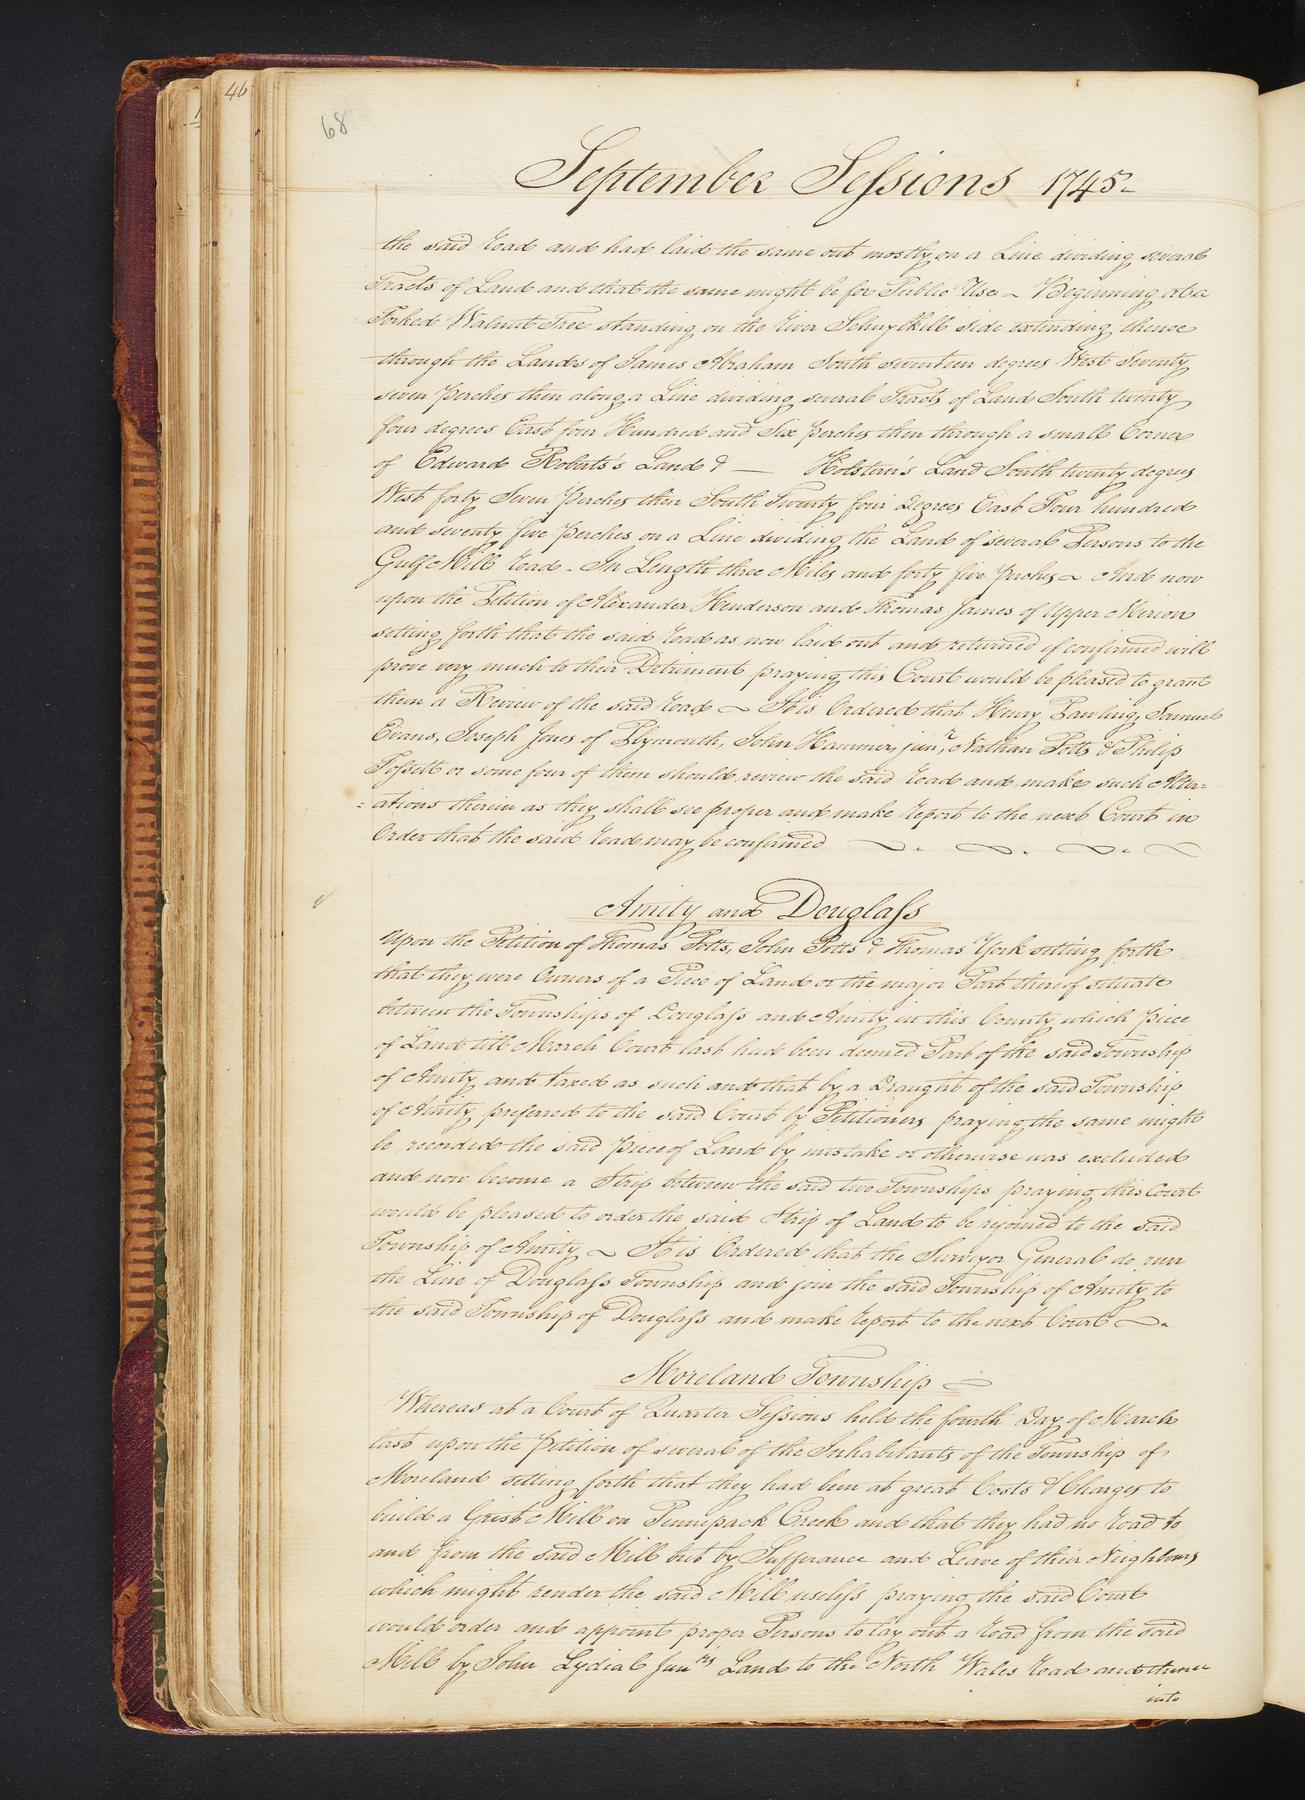 46
68
September Sessions 1745
the said road and had laid the same out mostly on a Line dividing several
Tracts of Land and that the same might be for Public Use ~ Beginning at a
Forked Walnut Tree standing on the river Schuylkill side extending thence
through the Lands of James Abraham South seventeen degrees West Seventy
seven perches then along a Line dividing several Tracts of Land South twenty
four degrees East four Hundred and Six perches then through a small Corner
of Edward Roberts's Land & — Holstein's Land South twenty degrees
West forty Seven perches then South Twenty four Degrees East Four hundred
and seventy five perches on a Line dividing the Land of several Persons to the
Gulf Mill road - In Length three Miles and forty five perches ~ And now
upon the Petition of Alexander Henderson and Thomas James of Upper Merion
setting forth that the said road as now laid out and returned if confirmed will
prove very much to their Detriment praying this Court would be pleased to grant
them a Review of the said road ~ It is Ordered that Henry Pawling, Samuel
Evans, Joseph Jones of Plymouth, John Hammer, junr, Nathan Potts & Philip
or some four of them should review the said road and make such Alter=
=ations therein as they shall see proper and make report to the next Court in
Order that the said road may be confirmed
Amity and Douglass
Upon the Petition of Thomas Potts, John Potts & Thomas York setting forth
that they were Owners of a Piece of Land or the major Part thereof situate
between the Townships of Douglass and Amity in this County which piece
of Land till March Court last had been deemed Part of the said Township
of Amity and taxed as such and that by a Draught of the said Township
of Amity preferred to the said Court by Petitioners praying the same might
be recorded the said piece of Land by mistake or otherwise was excluded
and now become a Strip between the said two Townships praying this Court
would be pleased to order the said Strip of Land to be rejoined to the said
Township of Amity ~ It is Ordered that the Surveyor General do run
the Line of Douglass Township and join the said Township of Amity to
the said Township of Douglass and make report to the next Court ~
Moreland Township
Whereas at a Court of Quarter Sessions held the fourth Day of March
last upon the petition of several of the Inhabitants of the Township of
Moreland setting forth that they had been at great Costs & Charges to
build a Grist Mill on Pennepack Creek and that they had no road to
and from the said Mill but by Sufferance and Leave of their Neighbours
which might render the said Mill useless praying the said Court
would order and appoint proper Persons to lay out a road from the said
Mill by John Lydial Junrs Land to the North Wales road and thence
into